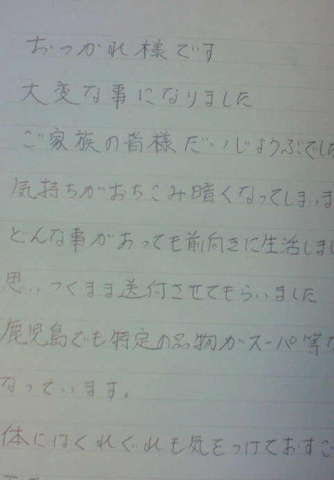 おつかれ様です
大変な事になりました
ご家族の皆様だいじょうぶでした
気持ちがおちこみ暗くなってしまいま
どんな事があっても前向きに生活しまし
思いつくまま送付させてもらいました
鹿児島でも特定の品物がスーパ等
なっています。
体にはくれぐれも気をつけておすご